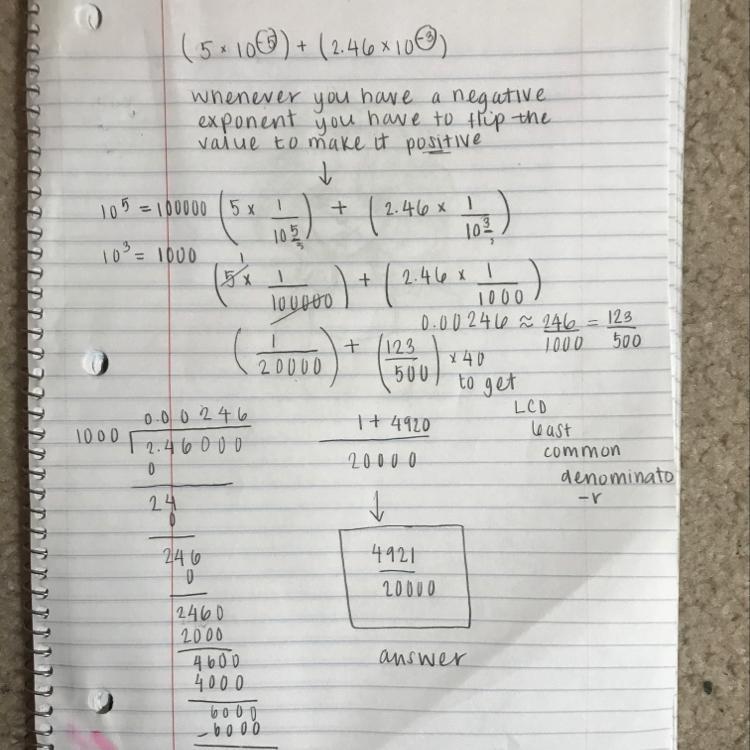 (5 × 10⁻⁵) + (2.46 × 10⁻³)
whenever you have a negative
exponent you have to flip the
value to make it positive
↓
10⁵ = 100000 (5 × 1/10⁵) + (2.46 × 1/10³)
10³ = 1000
1
(5 × 1/100000) + (2.46 × 1/1000)
0.00246 ≈ 246/1000 = 123/500
(1/20000) + (123/500) ×40
to get
LCD
least
common
denominato
-r
0.00246
1000 2.46000
0
24
0
246
0
2460
2000
4600
4000
6000
-6000
1 + 4920
20000
↓
4921
20000
answer